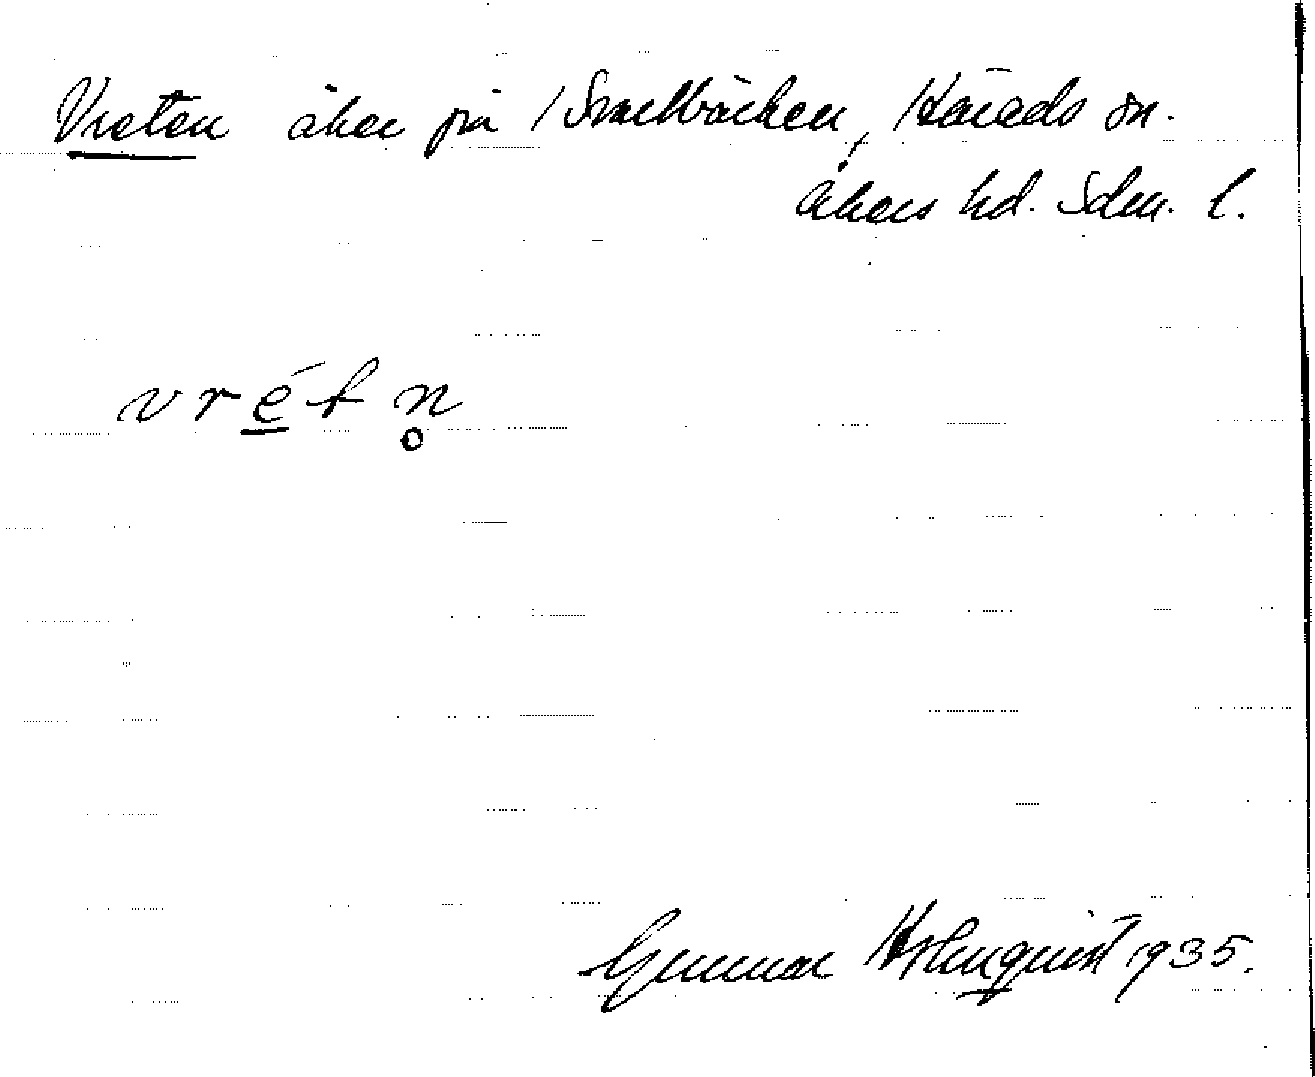 Vreten åker på Snällbäcken, Härads sn.
Åkers hd. Sdm. l.
v r é t n̥
Gunnar Holmquist 1935.